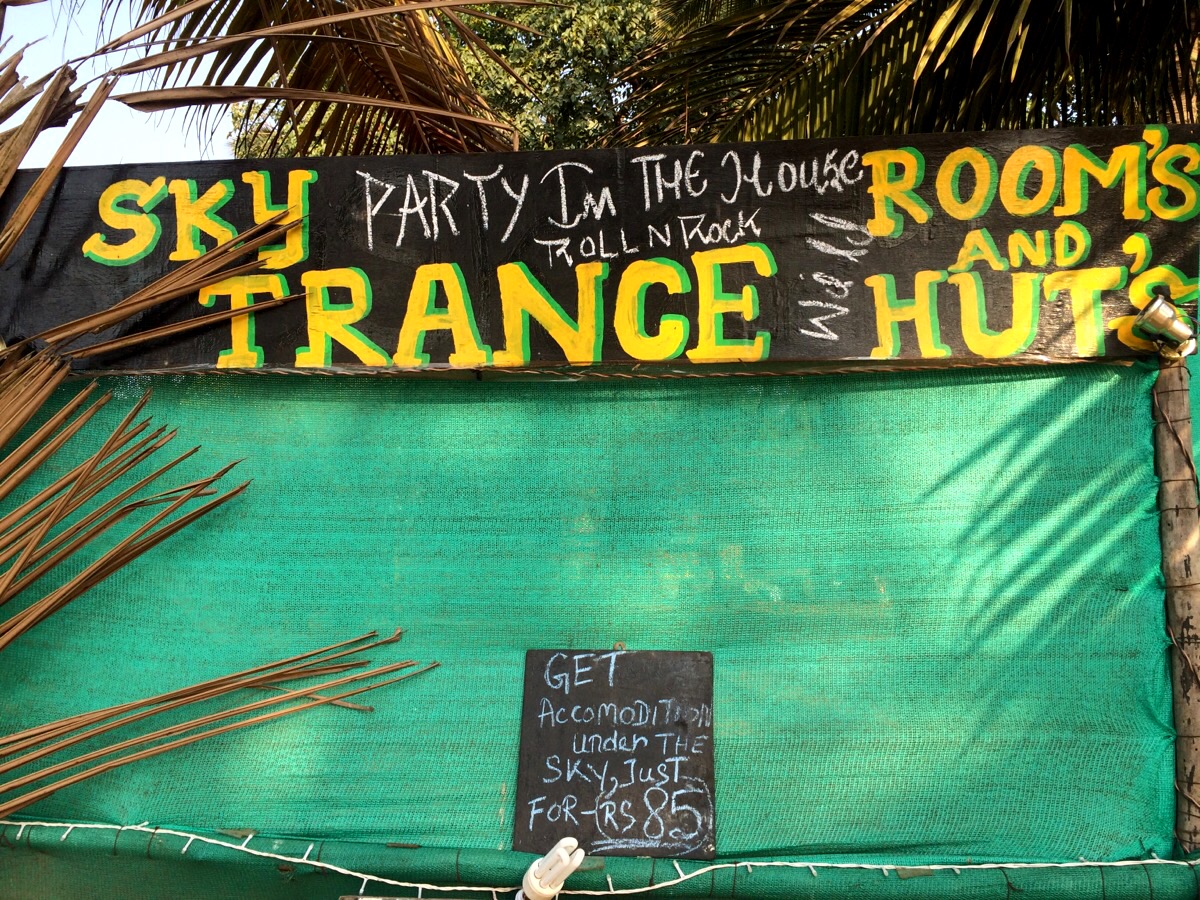 SKY
TRANCE
PARTY Im THE HOUSE
ROLL N ROCK
ROOM'S
AND
HUT'S
GET
ACCOMODITION
under THE
SKY, JUST
FOR-RS 85